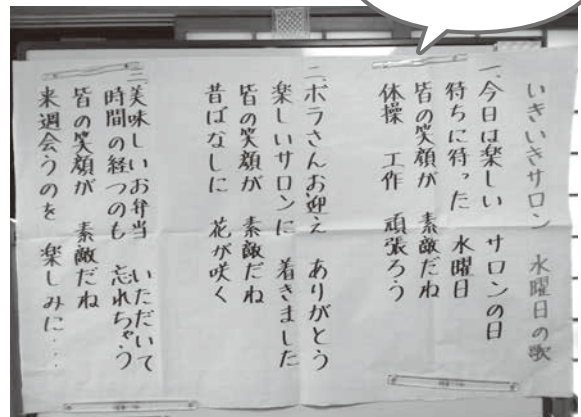 いきいきサロン 水曜日の歌
一、今日は楽しい サロンの日
待ちに待った 水曜日
皆の笑顔が 素敵だね
体操 工作 頑張ろう
二、ボラさんお迎え ありがとう
楽しいサロンに 着きました
皆の笑顔が 素敵だね
昔ばなしに 花が咲く
三、美味しいお弁当 いただいて
時間の経つのも 忘れちゃう
皆の笑顔が 素敵だね
来週会うのを 楽しみに・・・